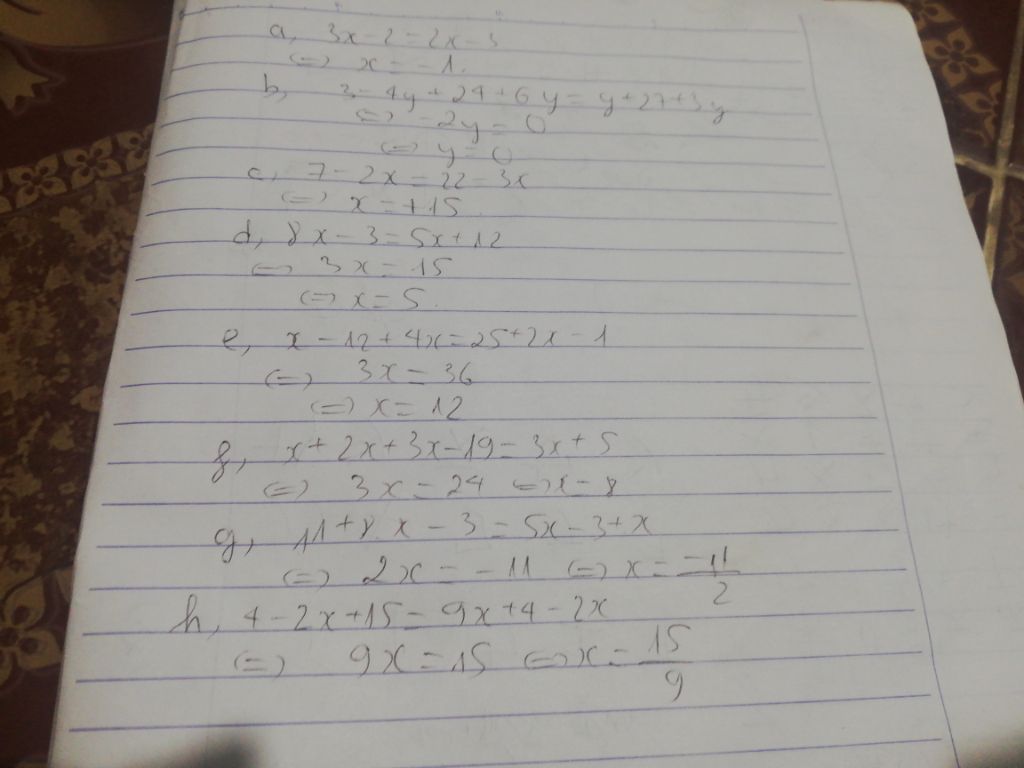 a, 3x-2=2x-3
<=> x=-1.
b, 3-4y+24+6y=y+27+3y
<=> -2y=0
<=> y=0
c, 7-2x=22-3x
<=> x=+15
d, 8x-3=5x+12
<=> 3x=15
<=> x=5.
e, x-12+4x=25+2x-1
<=> 3x=36
<=> x=12
f, x+2x+3x-19=3x+5
<=> 3x=24 <=> x=8
g, 11+8x-3=5x-3+x
<=> 2x=-11 <=> x=-11/2
h, 4-2x+15=9x+4-2x
<=> 9x=15 <=> x=15/9